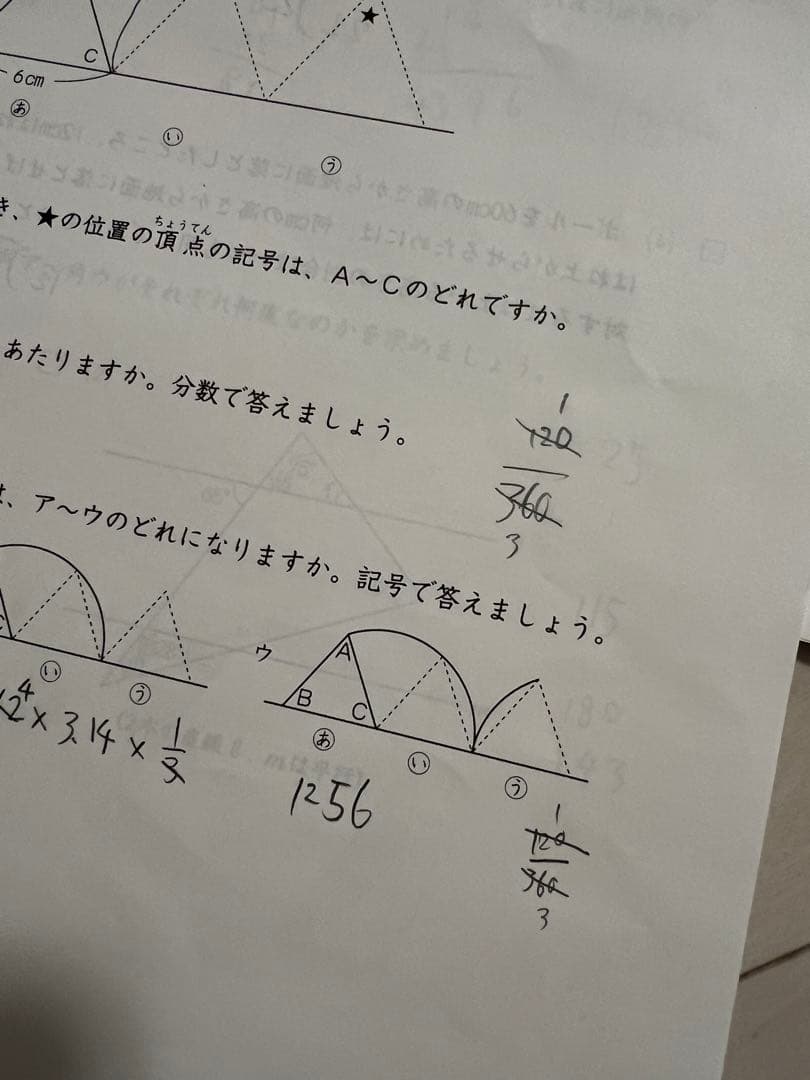 ★
C
6cm
あ
い
う
き、★の位置の頂点の記号は、A～Cのどれですか。
ちょうてん
あたりますか。分数で答えましょう。
1
120
360
3
は、ア～ウのどれになりますか。記号で答えましょう。
い
う
ウ
A
B
C
あ
い
う
12 4 × 3.14 × 1/3
1256
1
120
360
3